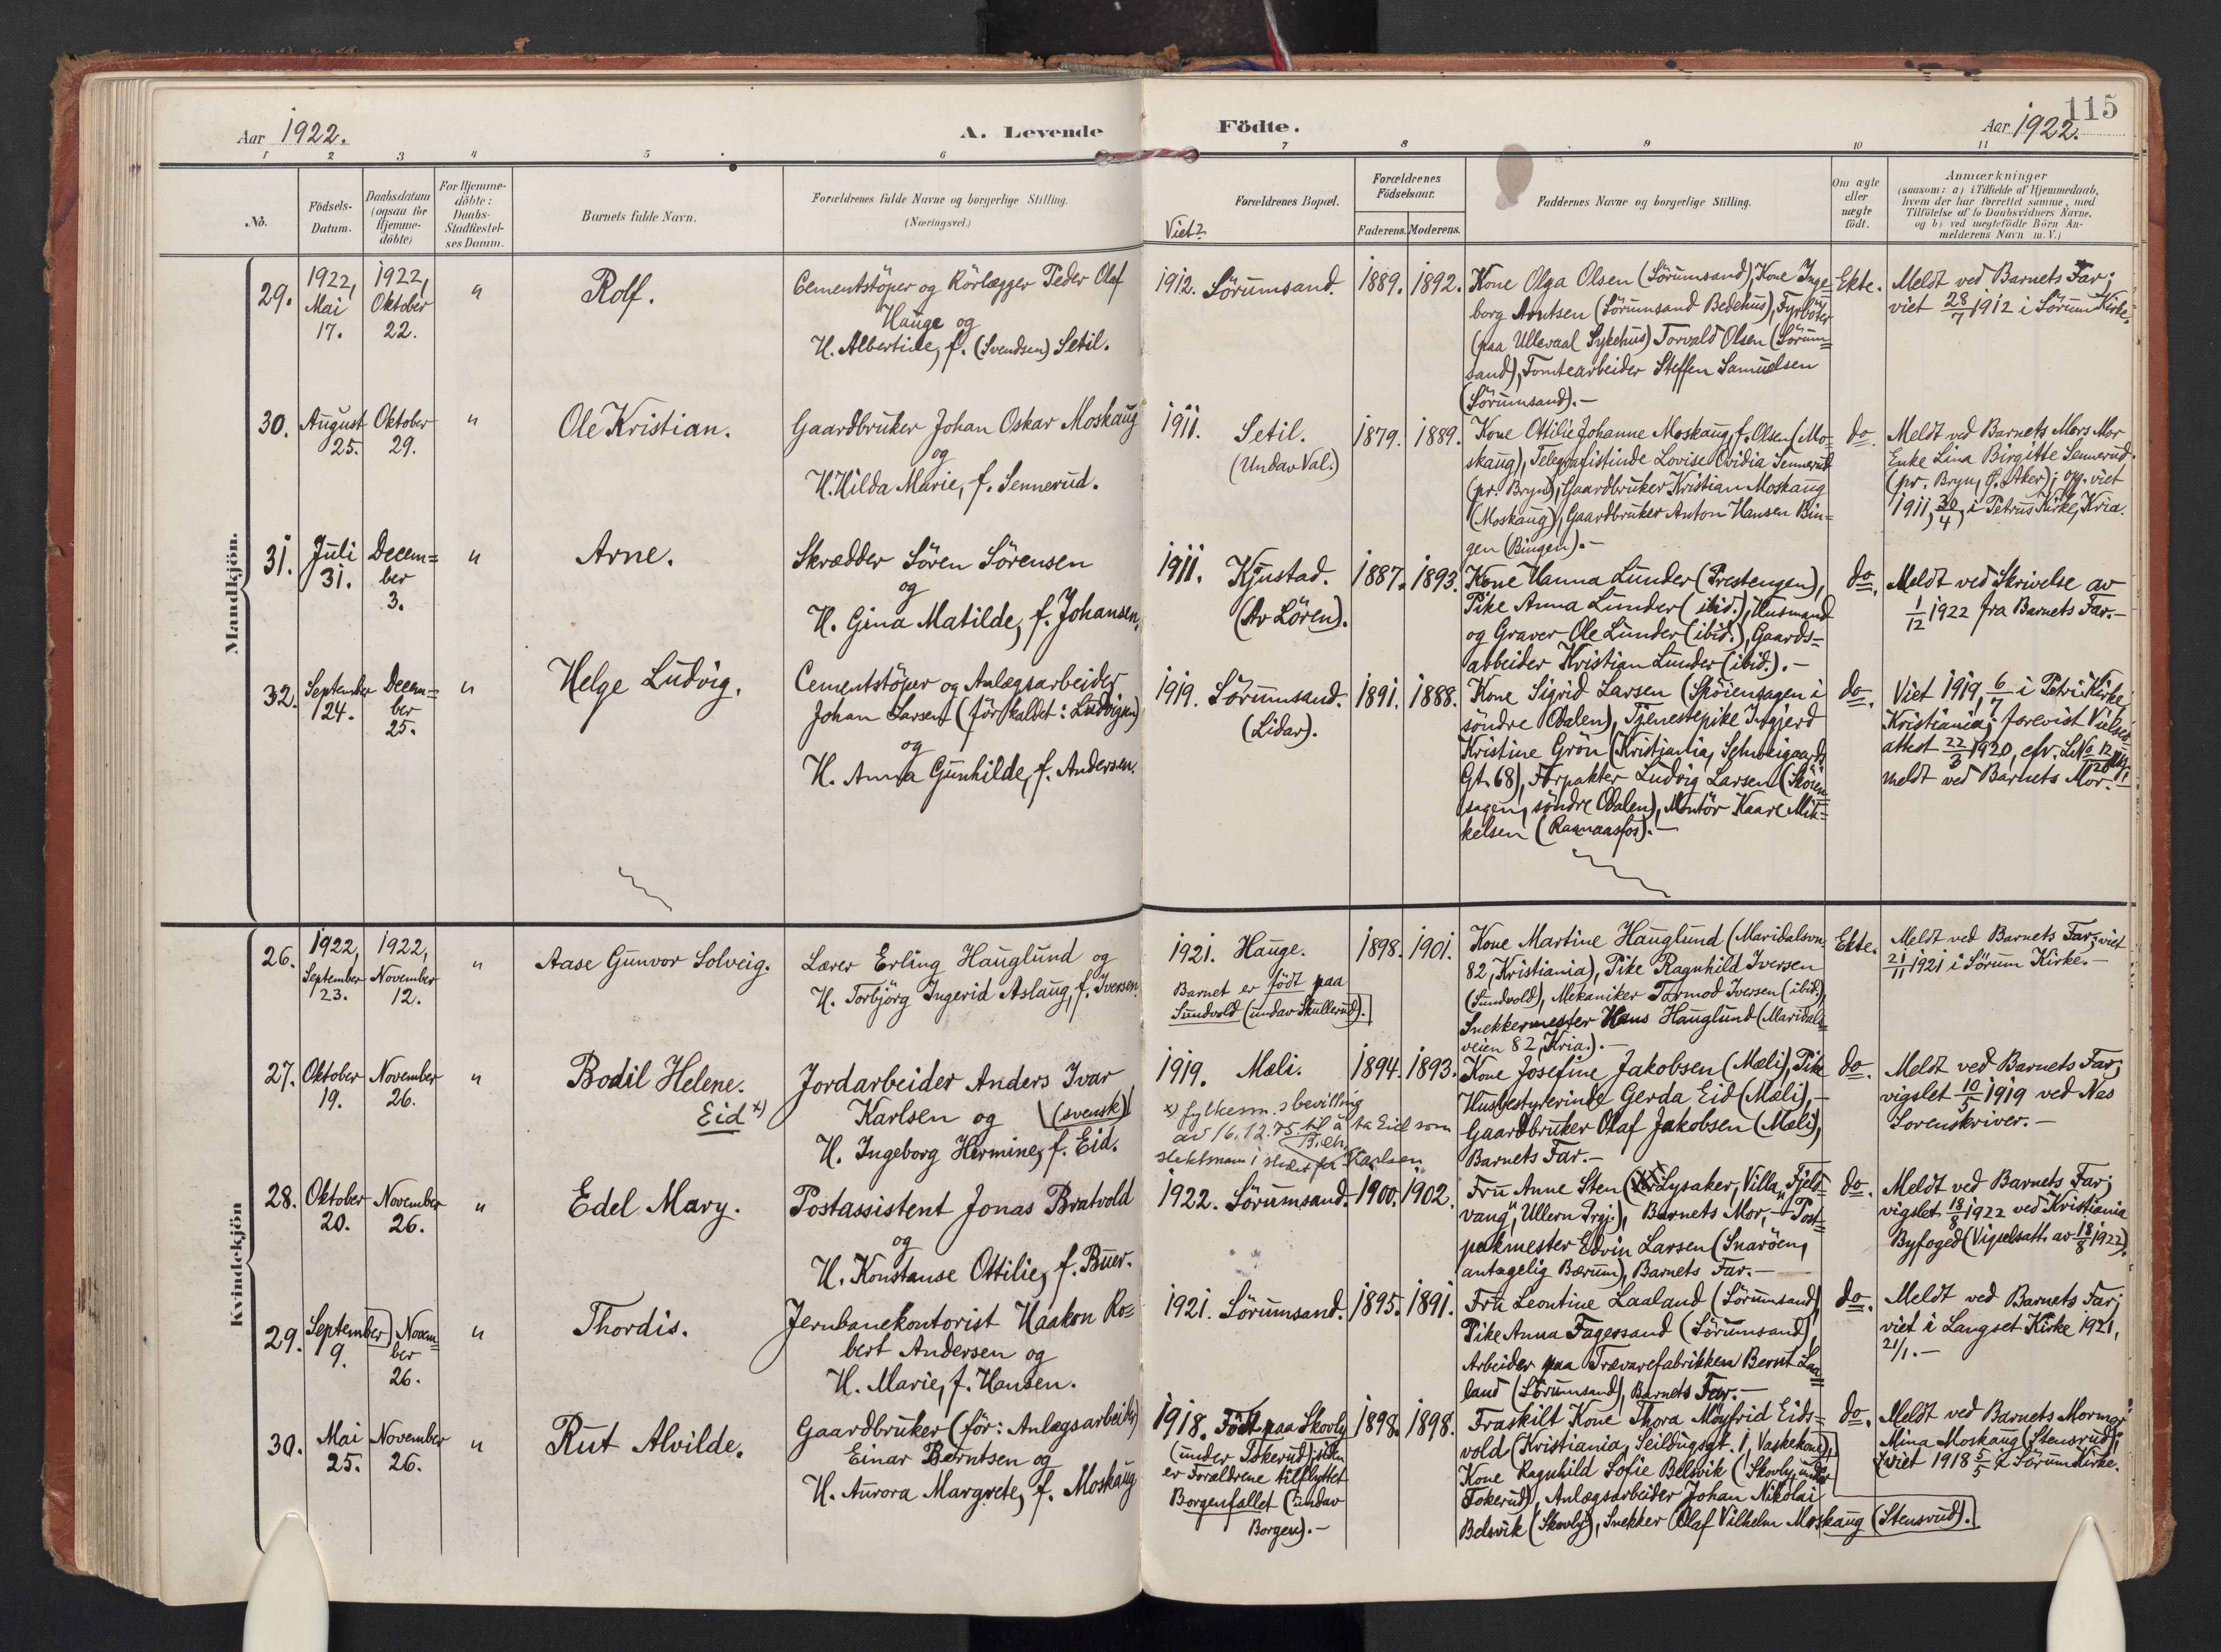 115
Aar 1922.
A. Levende
Födte.
Aar 1922.
1 2 3 4 5 6 7 8 9 10 11
No.
Födsels-
Datum.
Daabsdatum
(ogsaa for
Hjemme-
döbte)
For Hjemme-
döbte:
Daabs-
Stadfæstel-
ses Datum.
Barnets fulde Navn.
Forældrenes fulde Navne og borgerlige Stilling.
(Næringsvei.)
Viet?
Forældrenes Bopæl.
Forældrenes
Födselsaar.
Faderens. Moderens.
Faddernes Navne og borgerlige Stilling.
Om ægte
eller
uægte
födt.
Anmærkninger
(saasom: a) i Tilfælde af Hjemmedaab,
hvem der har forrettet samme, med
Tilföielse af to Daabsvidners Navne.
og b) ved uægtefödte Börn An-
melderens Navn m. V.)
Mandkjön.
29.
1922,
Mai
17.
1922,
Oktober
22.
"
Rolf.
Cementstöper og Rörlægger Peder Olaf
Hauge og
H. Albertine, f. (Svendsen) Setil.
1912. Sörumsand.
1889. 1892.
Kone Olga Olsen (Sörumsand), Kone Inge-
borg Arntsen (Sörumsand Bedehus), Fyrböter
(paa Ullevaal Sykehus) Torvald Olsen (Sörum=
sand), Tomtearbeider Steffen Samuelsen
(Sörumsand).-
Ekte.
Meldt ved Barnets Far;
viet 28/7 1912 i Sörum Kirke.
30.
August
25.
Oktober
29.
"
Ole Kristian.
Gaardbruker Johan Oskar Moskaug
og
H. Hilda Marie, f. Sennerud.
1911. Setil.
(Undav Val.)
1879. 1889.
Kone Ottilie Johanne Moskaug, f. Olsen (Mo-
skaug), Telegrafistinde Lovise Ovidia Sennerud
(pr. Bryn), Gaardbruker Kristian Moskaug
(Moskaug), Gaardbruker Anton Hansen Bin=
gen (Bingen).-
do.
Meldt ved Barnets Mors Mor
Enke Lina Birgitte Sennerud.
(pr. Bryn, Ø. Aker); opg. viet
1911, 30/4, i Petrus Kirke, Kria.
31.
Juli
31.
Decem=
ber
3.
"
Arne.
Skrædder Sören Sörensen
og
H. Gina Matilde, f. Johansen.
1911. Kjustad.
(Av Lören).
1887. 1893.
Kone Hanna Lunder (Prestengen),
Pike Anna Lunder (ibid.), Husmand
og Graver Ole Lunder (ibid.), Gaards-
arbeider Kristian Lunder (ibid.).-
do.
Meldt ved Skrivelse av
1/12 1922 fra Barnets Far.-
32.
September
24.
Decem=
ber
25.
"
Helge Ludvig.
Cementstöper og Anlægsarbeider
Johan Larsen (för kaldet: Ludvigsen)
og
H. Anna Gunhilde, f. Andersen.
1919. Sörumsand.
(Lidar).
1891. 1888.
Kone Sigrid Larsen (Sköiensagen i
söndre Odalen), Tjenestepike Ingjerd
Kristine Grön (Kristiania, Schweigaards
Gt. 68), Forpakter Ludvig Larsen (Sköien=
sagen, söndre Odalen), Montör Kaare Mik=
kelsen (Raanaasfos).-
do.
Viet 1919, 6/7 i Petri Kirke,
Kristiania; forevist Vielses-
attest 22/3 1920, cfr. L. No 12
meldt ved Barnets Mor.-
Kvindekjön
26.
1922,
September
23.
1922,
November
12.
"
Aase Gunvor Solveig.
Lærer Erling Hauglund og
H. Torbjörg Ingerid Aslaug, f. Iversen.
1921. Hauge.
Barnet er födt paa
Sundvold (undav Skullerud).
1898. 1901.
Kone Martine Hauglund (Maridalsvn.
82, Kristiania), Pike Ragnhild Iversen
(Sundvold), Mekaniker Tormod Iversen (ibid.),
Snekkermester Hans Hauglund (Maridals-
veien 82, Kria.).-
Ekte.
Meldt ved Barnets Far; viet
21/11 1921 i Sörum Kirke.-
27.
Oktober
19.
November
26.
"
Bodil Helene.
Eid x)
Jordarbeider Anders Ivar
Karlsen og (svensk)
H. Ingeborg Hermine, f. Eid.
1919. Mæli.
x) fylkesm.s bevilling
av 16.12.75 til å ta Eid som
slektsnavn i stedet for Karlsen
1894. 1893.
Kone Josefine Jakobsen (Mæli), Pike
Husbestyrerinde Gerda Eid (Mæli),-
Gaardbruker Olaf Jakobsen (Mæli),
Barnets Far.-
do.
Meldt ved Barnets Far;
vigslet 10/5 1919 ved Nes
Sorenskriver.-
28.
Oktober
20.
November
26.
"
Edel Mary.
Postassistent Jonas Bratvold
og
H. Konstanse Ottilie, f. Buer.
1922. Sörumsand.
1900. 1902.
Fru Anne Sten (Lysaker, Villa „Fjeld-
vang", Ullern Prgj.), Barnets Mor,- Post=
pakmester Edvin Larsen (Snaröen,
antagelig Bærum), Barnets Far.-
do.
Meldt ved Barnets Far;
vigslet 18/8 1922 ved Kristiania
Byfoged (Vigselsatt. av 18/8 1922).
29.
September
9.
Novem=
ber
26.
"
Thordis.
Jernbanekontorist Haakon Ro=
bert Andersen og
H. Marie, f. Hansen.
1921. Sörumsand.
1895. 1891.
Fru Leontine Laaland (Sörumsand),
Pike Anna Fagersand (Sörumsand),
Arbeider paa Trævarefabrikken Bernt Laa=
land (Sörumsand), Barnets Far.-
do.
Meldt ved Barnets Far;
viet i Langset Kirke 1921,
21/1.-
30.
Mai
25.
November
26.
"
Rut Alvilde.
Gaardbruker (för: Anlægsarbeider)
Einar Berntsen og
H. Aurora Margrete, f. Moskaug
1918. Födt paa Skovly
(under Tokerud); siden
er Forældrene tilflyttet
Borgenfallet (undav
Borgen).-
1898. 1898.
Fraskilt Kone Thora Möyfrid Eids=
vold (Kristiania, Seildugsgt. 1, Vaskekone),
Kone Ragnhild Sofie Belsvik (Skovly under
Tokerud), Anlægsarbeider Johan Nikolai
Belsvik (Skovly), Snekker Olaf Vilhelm Moskaug (Stensrud).
do.
Meldt ved Barnets Mormor
Mina Moskaug (Stensrud);
viet 1918 5/5 i Sörum Kirke.